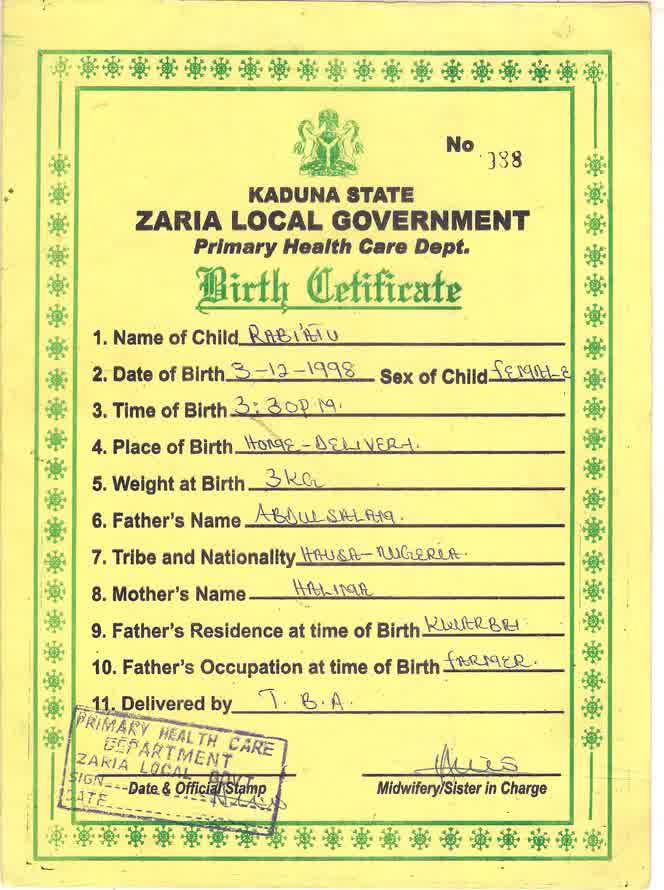 No 388
KADUNA STATE
ZARIA LOCAL GOVERNMENT
Primary Health Care Dept.
Birth Cetificate
1. Name of Child RABI'ATU
2. Date of Birth 3-12-1998 Sex of Child FEMALE
3. Time of Birth 3:30PM.
4. Place of Birth HOME-DELIVERY.
5. Weight at Birth 3KG
6. Father's Name ABDULSALAM.
7. Tribe and Nationality HAUSA-NIGERIA.
8. Mother's Name HALIMA
9. Father's Residence at time of Birth KWARBAI
10. Father's Occupation at time of Birth FARMER.
11. Delivered by T.B.A.
PRIMARY HEALTH CARE
DEPARTMENT
ZARIA LOCAL GOVT
SIGN
DATE
Date & Official Stamp
Midwifery/Sister in Charge